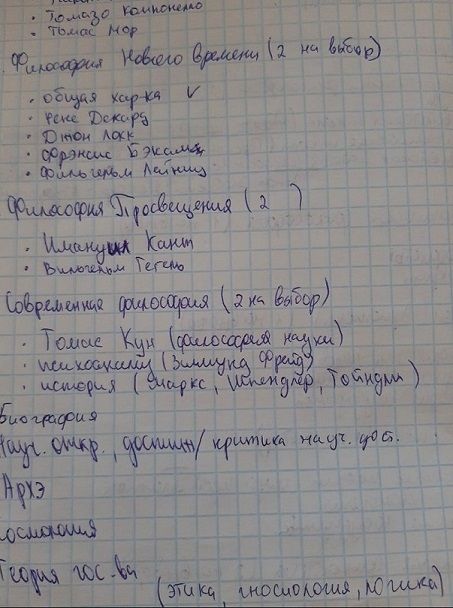 · Томазо Компонелло
· Томас Мор
Философия Нового времени (2 на выбор)
· общая хар-ка ✓
· Рене Декард
· Джон Локк
· Фрэнсис Бэкам
· Фильгельм Лайниц
Философия Просвещения (2 )
· Имануил Кант
· Вильгельм Гегель
Современная философия (2 на выбор)
· Томас Кун (философия науки)
· психоанализ (Зигмунд Фрейд)
· история (Маркс, Шпенглер, Тойнди)
Биография
Науч. откр., достиж/ критика науч. дост.
Архэ
космология
Теория гос-ва
(этика, гносиология, логика)